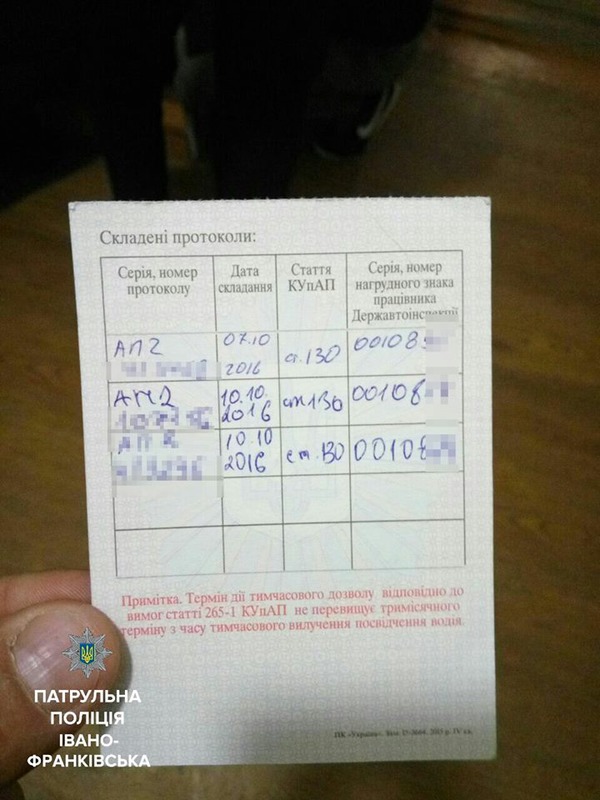 Складені протоколи:
Серія, номер протоколу
Дата складання
Стаття КУпАП
Серія, номер нагрудного знака працівника Державтоінспекції
АП2
07.10
2016
ст.130
00108
АП2
10.10.
2016
ст130
00108
АП2
10.10
2016
ст.130
00108
Примітка. Термін дії тимчасового дозволу відповідно до
вимог статті 265-1 КУпАП не перевищує тримісячного
терміну з часу тимчасового вилучення посвідчення водія.
ПК «Україна». Зам. 2015 р. IV кв.
ПАТРУЛЬНА
ПОЛІЦІЯ
ІВАНО-
ФРАНКІВСЬКА